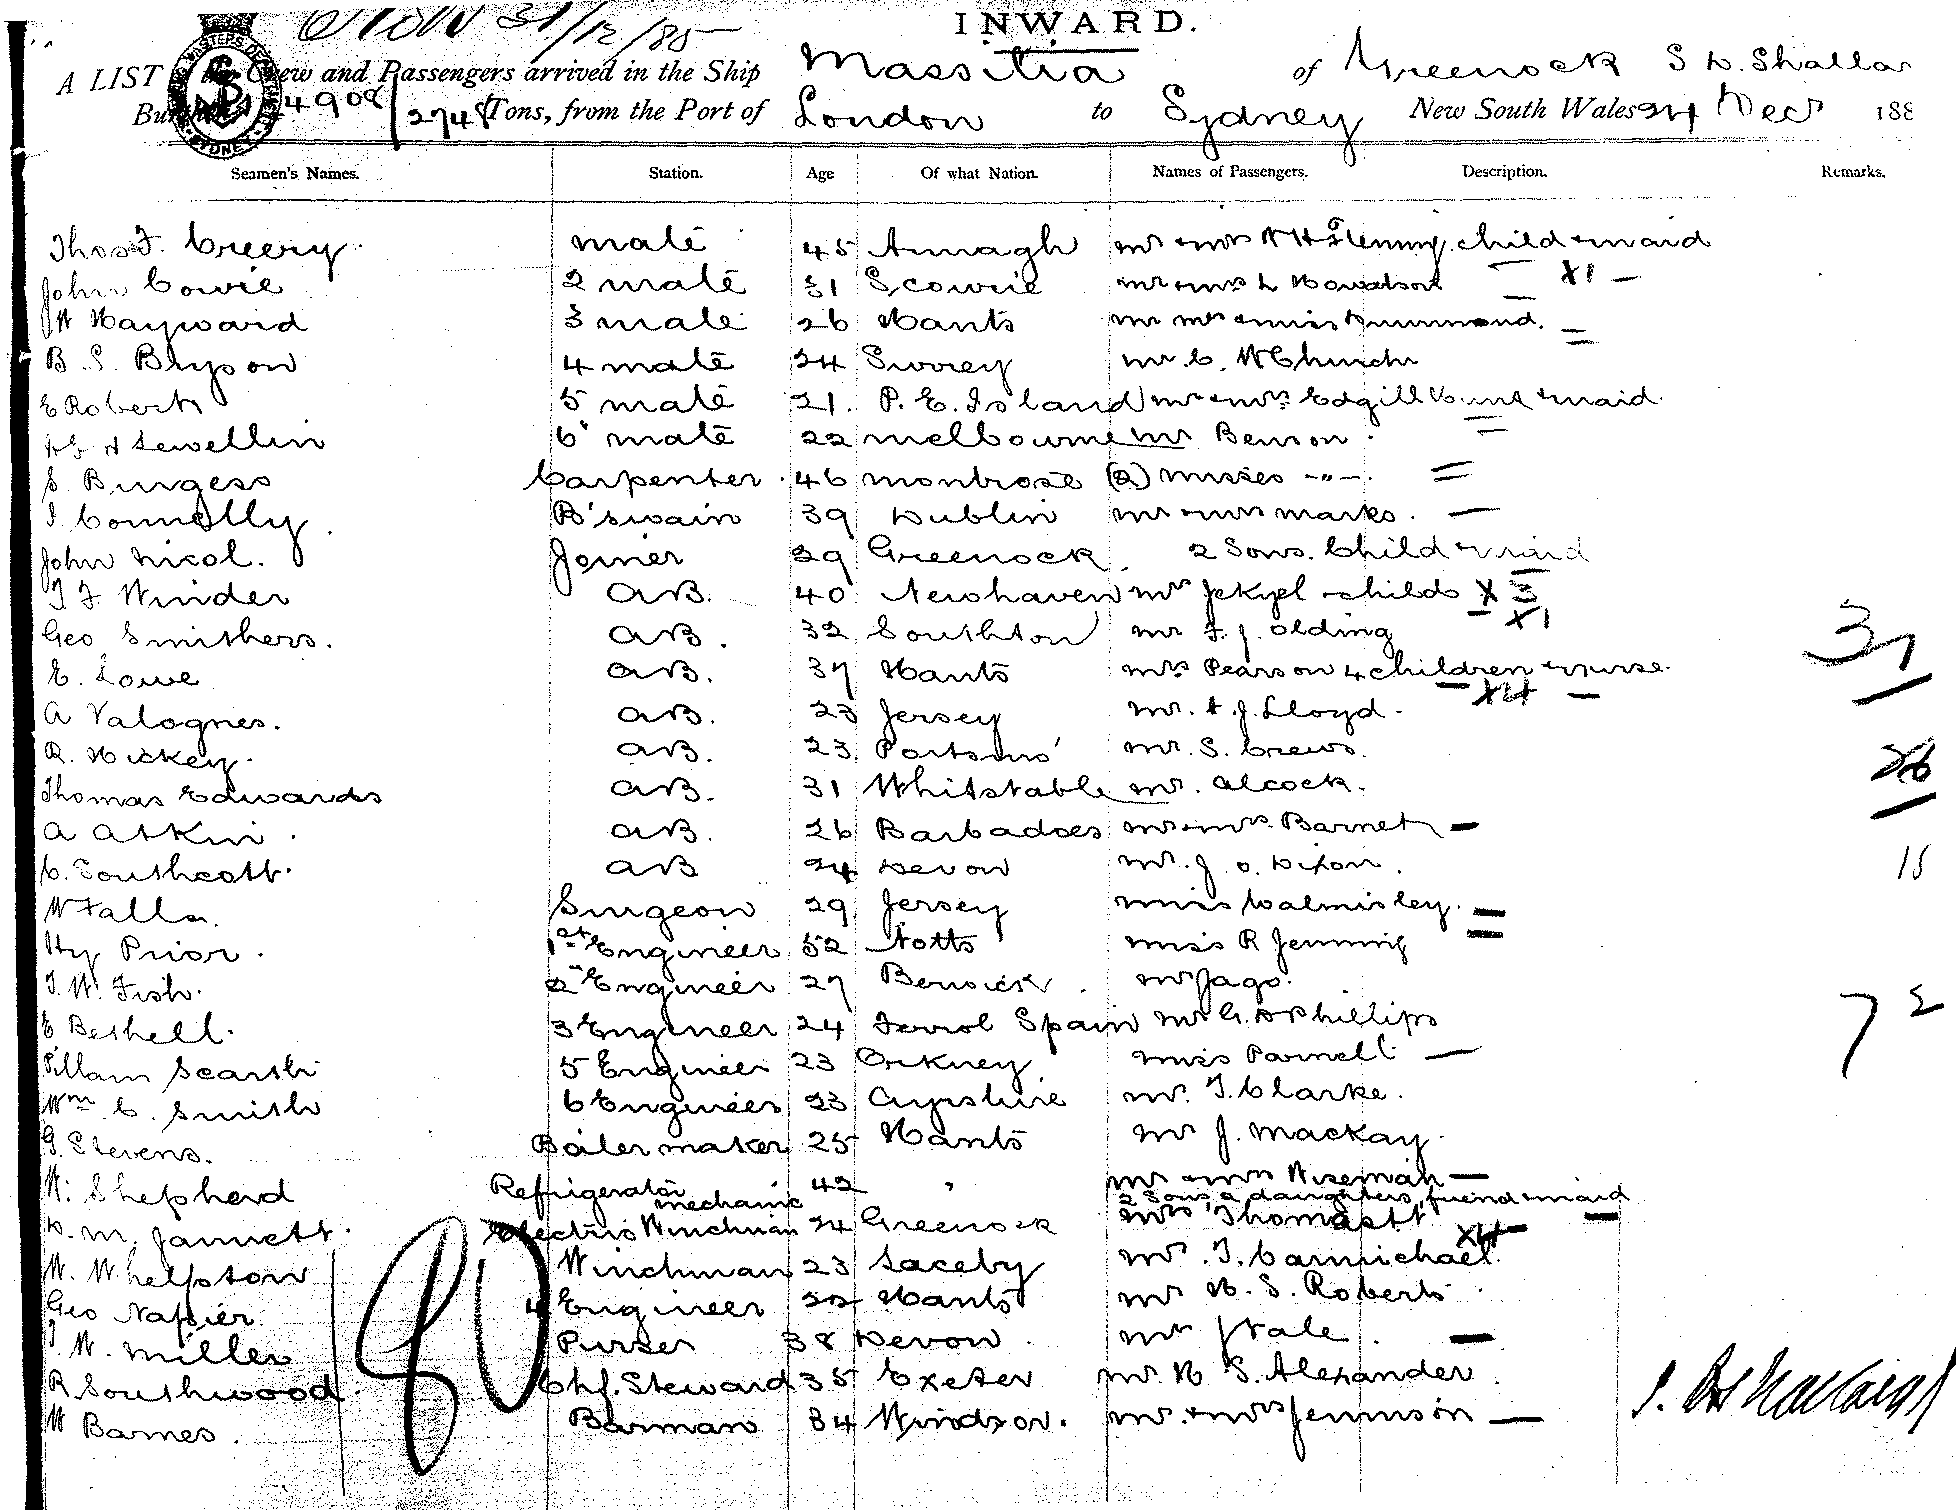 31/12/85
INWARD.
A LIST of the Crew and Passengers arrived in the Ship Massilia of Greenock
4908/2748 Tons, from the Port of London to Sydney New South Wales 24 Decr 188
Seamen's Names. Station. Age Of what Nation. Names of Passengers. Description. Remarks.
Thos F. Creery mate 45 Armagh mr & mrs Fleming child & maid
John Cowie 2 mate 31 mr & mrs X1
W Hayward 3 mate 26 Hants mr mrs & miss Drummond.
B. S. Bryson 4 mate 24 Surrey mr. C. W Church
E Roberts 5 mate 21. P. E. Island mr & mrs Edgill & maid
Lewellin 6 mate 22 melbourne mr Benson.
S. Burgess Carpenter 46 montrose (2) misses -"-.
J. Connolly B'swain 39 Dublin mr & mrs marks.
John Nicol. Joiner 29 Greenock 2 Sons. Child & maid
T F Winder AB. 40 Newhaven mrs Jekyel childs X 3
Geo Smithers. AB. 32 Southton mr F. J. Olding X1
E. Lowe AB. 37 Hants mrs Pearson 4 children & nurse X4
A Valognes. AB. 23 Jersey mr. A. J. Lloyd.
R. Hickey. AB. 23 Portsmo' mr. S. Crews.
Thomas Edwards AB. 31 Whitstable mr. Alcock.
A Atkin AB. 26 Barbadoes mr & mrs. Barnet
C. Southcott. AB 24 Devon mr. J. O. Dixon.
W Falla Surgeon 29 Jersey miss Walmisley.
Hy Prior. 1st Engineer 52 Notts miss R Jenning
T. W. Fish. 2n Engineer 27 Berwick mr Jago.
E Bethell. 3 Engineer 24 Ferrol Spain mr G. Phillips
William Scarth 5 Engineer 23 Orkney miss Parnell
Wm C. Smith 6 Engineer 23 Ayrshire mr. T. Clarke.
G. Stevens. Boiler maker 25 Hants mr J. Mackay
W. Shepherd Refrigerator mechanic 42 " mr & mrs Wiseman
2 Sons 2 daughters, friend & maid
D. M. Jannett. Electric Winchman 24 Greenock mrs Thomas X4
W. Whelpton Winchman 23 Laceby mr. T. Carmichael.
Geo Napier 4 Engineer Hants mr H. S. Roberts
T. W. Miller Purser 38 Devon mrs Vale.
R Southwood Chf. Steward 35 Exeter mr. H S. Alexander
W Barnes. Barman 34 Windsor. mr. & mrs Jennison
37
26
15
72
80